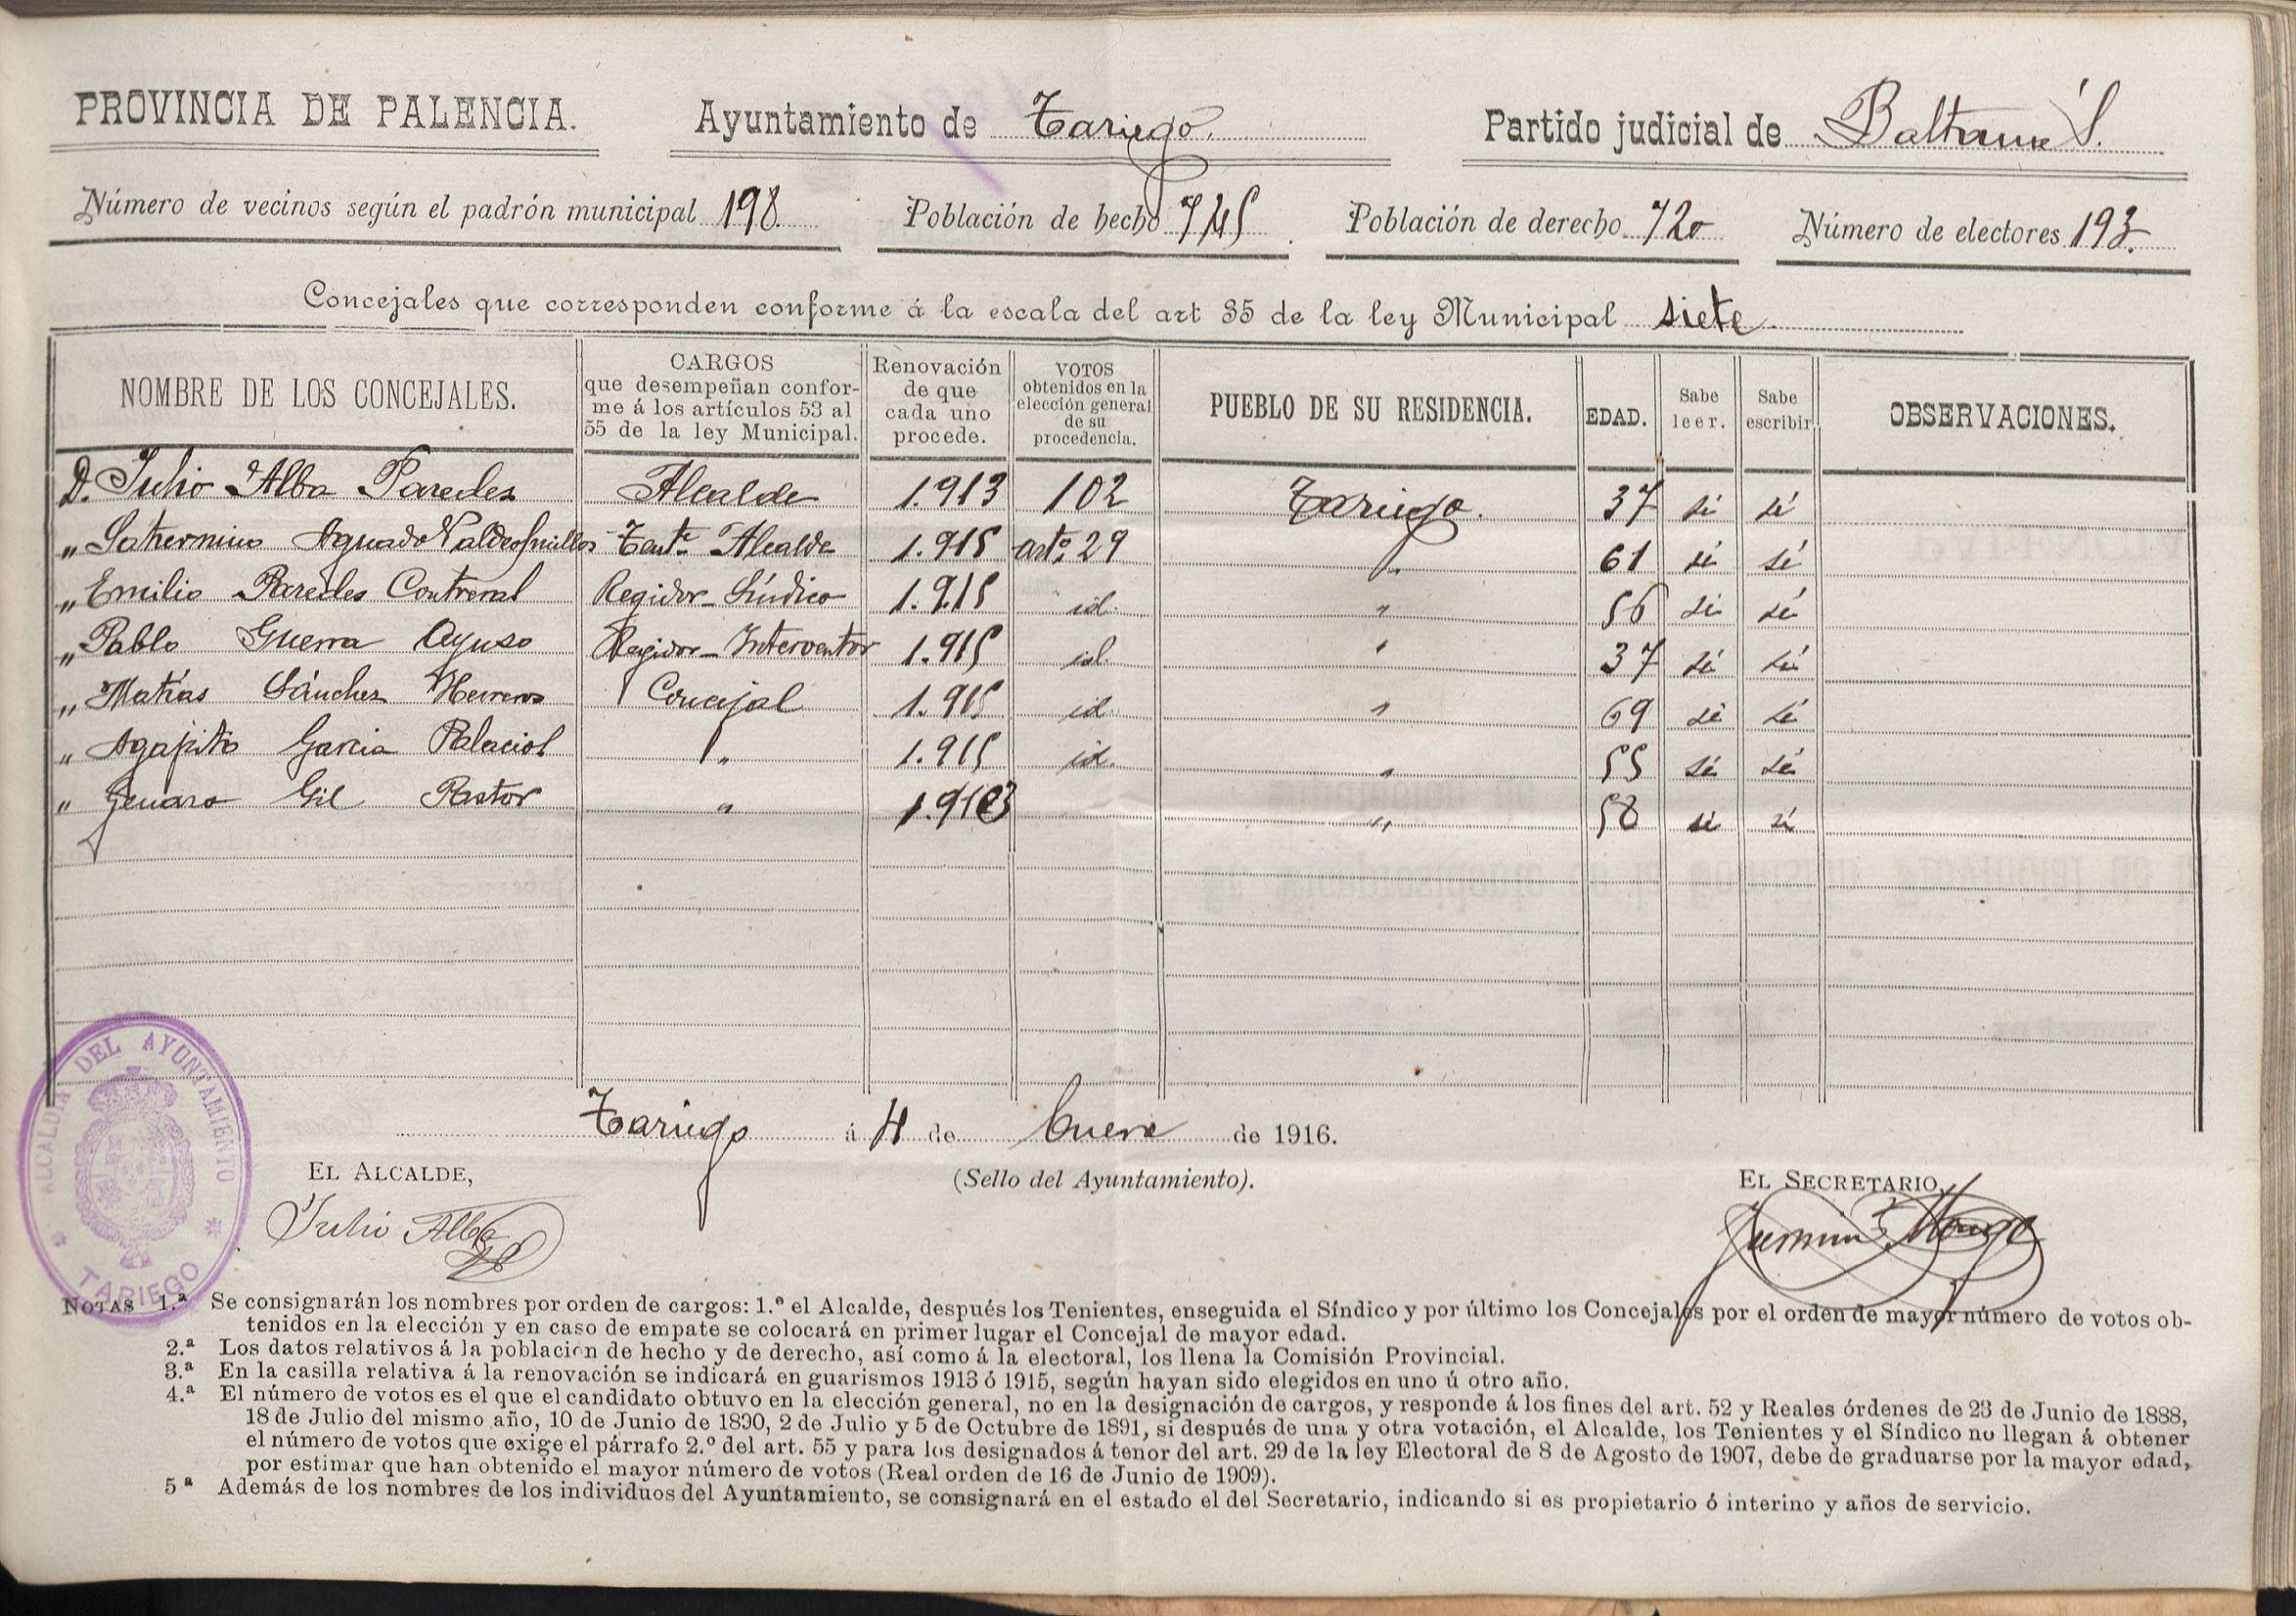 PROVINCIA DE PALENCIA. Ayuntamiento de Tariego. Partido judicial de Baltanás.
Número de vecinos según el padrón municipal 198. Población de hecho 745 Población de derecho 720 Número de electores 193.
Concejales que corresponden conforme á la escala del art 35 de la ley Municipal siete.
NOMBRE DE LOS CONCEJALES. CARGOS que desempeñan conforme á los artículos 53 al 55 de la ley Municipal. Renovación de que cada uno procede. VOTOS obtenidos en la elección general de su procedencia. PUEBLO DE SU RESIDENCIA. EDAD. Sabe leer. Sabe escribir OBSERVACIONES.
D. Julio Alba Paredes Alcalde 1.913 102 Tariego. 37 si sí
" Saturnino Aguado Valdeolmillos Tente. Alcalde 1.915 arto. 29 " 61 si sí
" Emilio Paredes Contreras Regidor-Síndico 1.915 id. " 56 si sí
" Pablo Guerra Ayuso Regidor-Interventor 1.915 id. " 37 sí sí
" Matías Sánchez Herreros Concejal 1.915 id. " 69 si sí
" Agapito Garcia Palacios " 1.915 id. " 55 sí sí
" Genaro Gil Pastor " 1.913 " 58 si sí
Tariego á 4 de Enero de 1916.
EL ALCALDE, (Sello del Ayuntamiento). EL SECRETARIO,
Julio Alba
ALCALDIA DEL AYUNTAMIENTO
* TARIEGO *
NOTAS 1.ª Se consignarán los nombres por orden de cargos: 1.º el Alcalde, después los Tenientes, enseguida el Síndico y por último los Concejales por el orden de mayor número de votos ob-
tenidos en la elección y en caso de empate se colocará en primer lugar el Concejal de mayor edad.
2.ª Los datos relativos á la población de hecho y de derecho, así como á la electoral, los llena la Comisión Provincial.
3.ª En la casilla relativa á la renovación se indicará en guarismos 1913 ó 1915, según hayan sido elegidos en uno ú otro año.
4.ª El número de votos es el que el candidato obtuvo en la elección general, no en la designación de cargos, y responde á los fines del art. 52 y Reales órdenes de 23 de Junio de 1888,
18 de Julio del mismo año, 10 de Junio de 1890, 2 de Julio y 5 de Octubre de 1891, si después de una y otra votación, el Alcalde, los Tenientes y el Síndico no llegan á obtener
el número de votos que exige el párrafo 2.º del art. 55 y para los designados á tenor del art. 29 de la ley Electoral de 8 de Agosto de 1907, debe de graduarse por la mayor edad,
por estimar que han obtenido el mayor número de votos (Real orden de 16 de Junio de 1909).
5ª Además de los nombres de los individuos del Ayuntamiento, se consignará en el estado el del Secretario, indicando si es propietario ó interino y años de servicio.